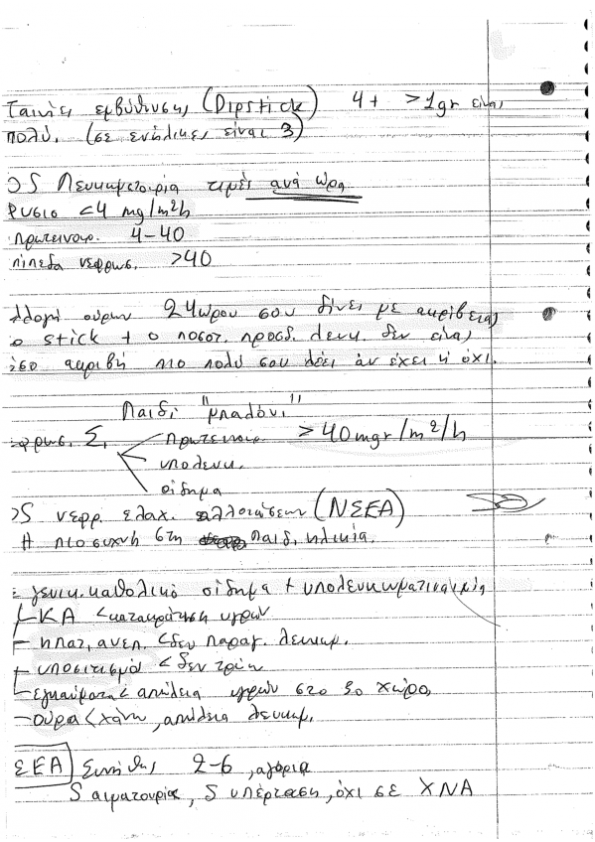 Ταινίες εμβύθισης (Dipstick) 4+ >1gr είναι
πολύ. (σε ενήλικες είναι 3)
OS Λευκωματουρία τιμές ανά ώρα
Φυσιο <4 mg/m²h
πρωτεϊνουρ. 4-40
πίπεδα νεφρωσ. >40
λλογή ούρων 24ώρου σου δίνει με ακρίβεια,
ο stick + ο ποσοτ. προσδ. λευκ. δεν είναι
όσο ακριβή πιο πολύ σου λέει άν έχει ή όχι.
Παιδί "μπαλόνι"
εφρωσ. Σ. πρωτεϊνουρ. >40mgr/m²/h
υπολευκ.
οίδημα
OS νεφρ. ελαχ. αλλοιώσεων (ΝΣΕΑ)
Η πιο συχνή στη παιδ. ηλικία.
γενικ. καθολικό οίδημα + υπολευκωματιναιμία
ΚΑ < κατακράτηση υγρών
ηπατ. ανεπ. < δεν παραγ. λευκωμ.
υποσιτισμοί < δεν τρώη
εγκαύματα < απώλεια υγρών στο 3ο χώρο,
ούρα < χάνη, απώλεια λευκωμ.
ΣΕΑ Συνήθης 2-6, αγόρια
S αιματουρία, S υπέρταση, όχι σε ΧΝΑ